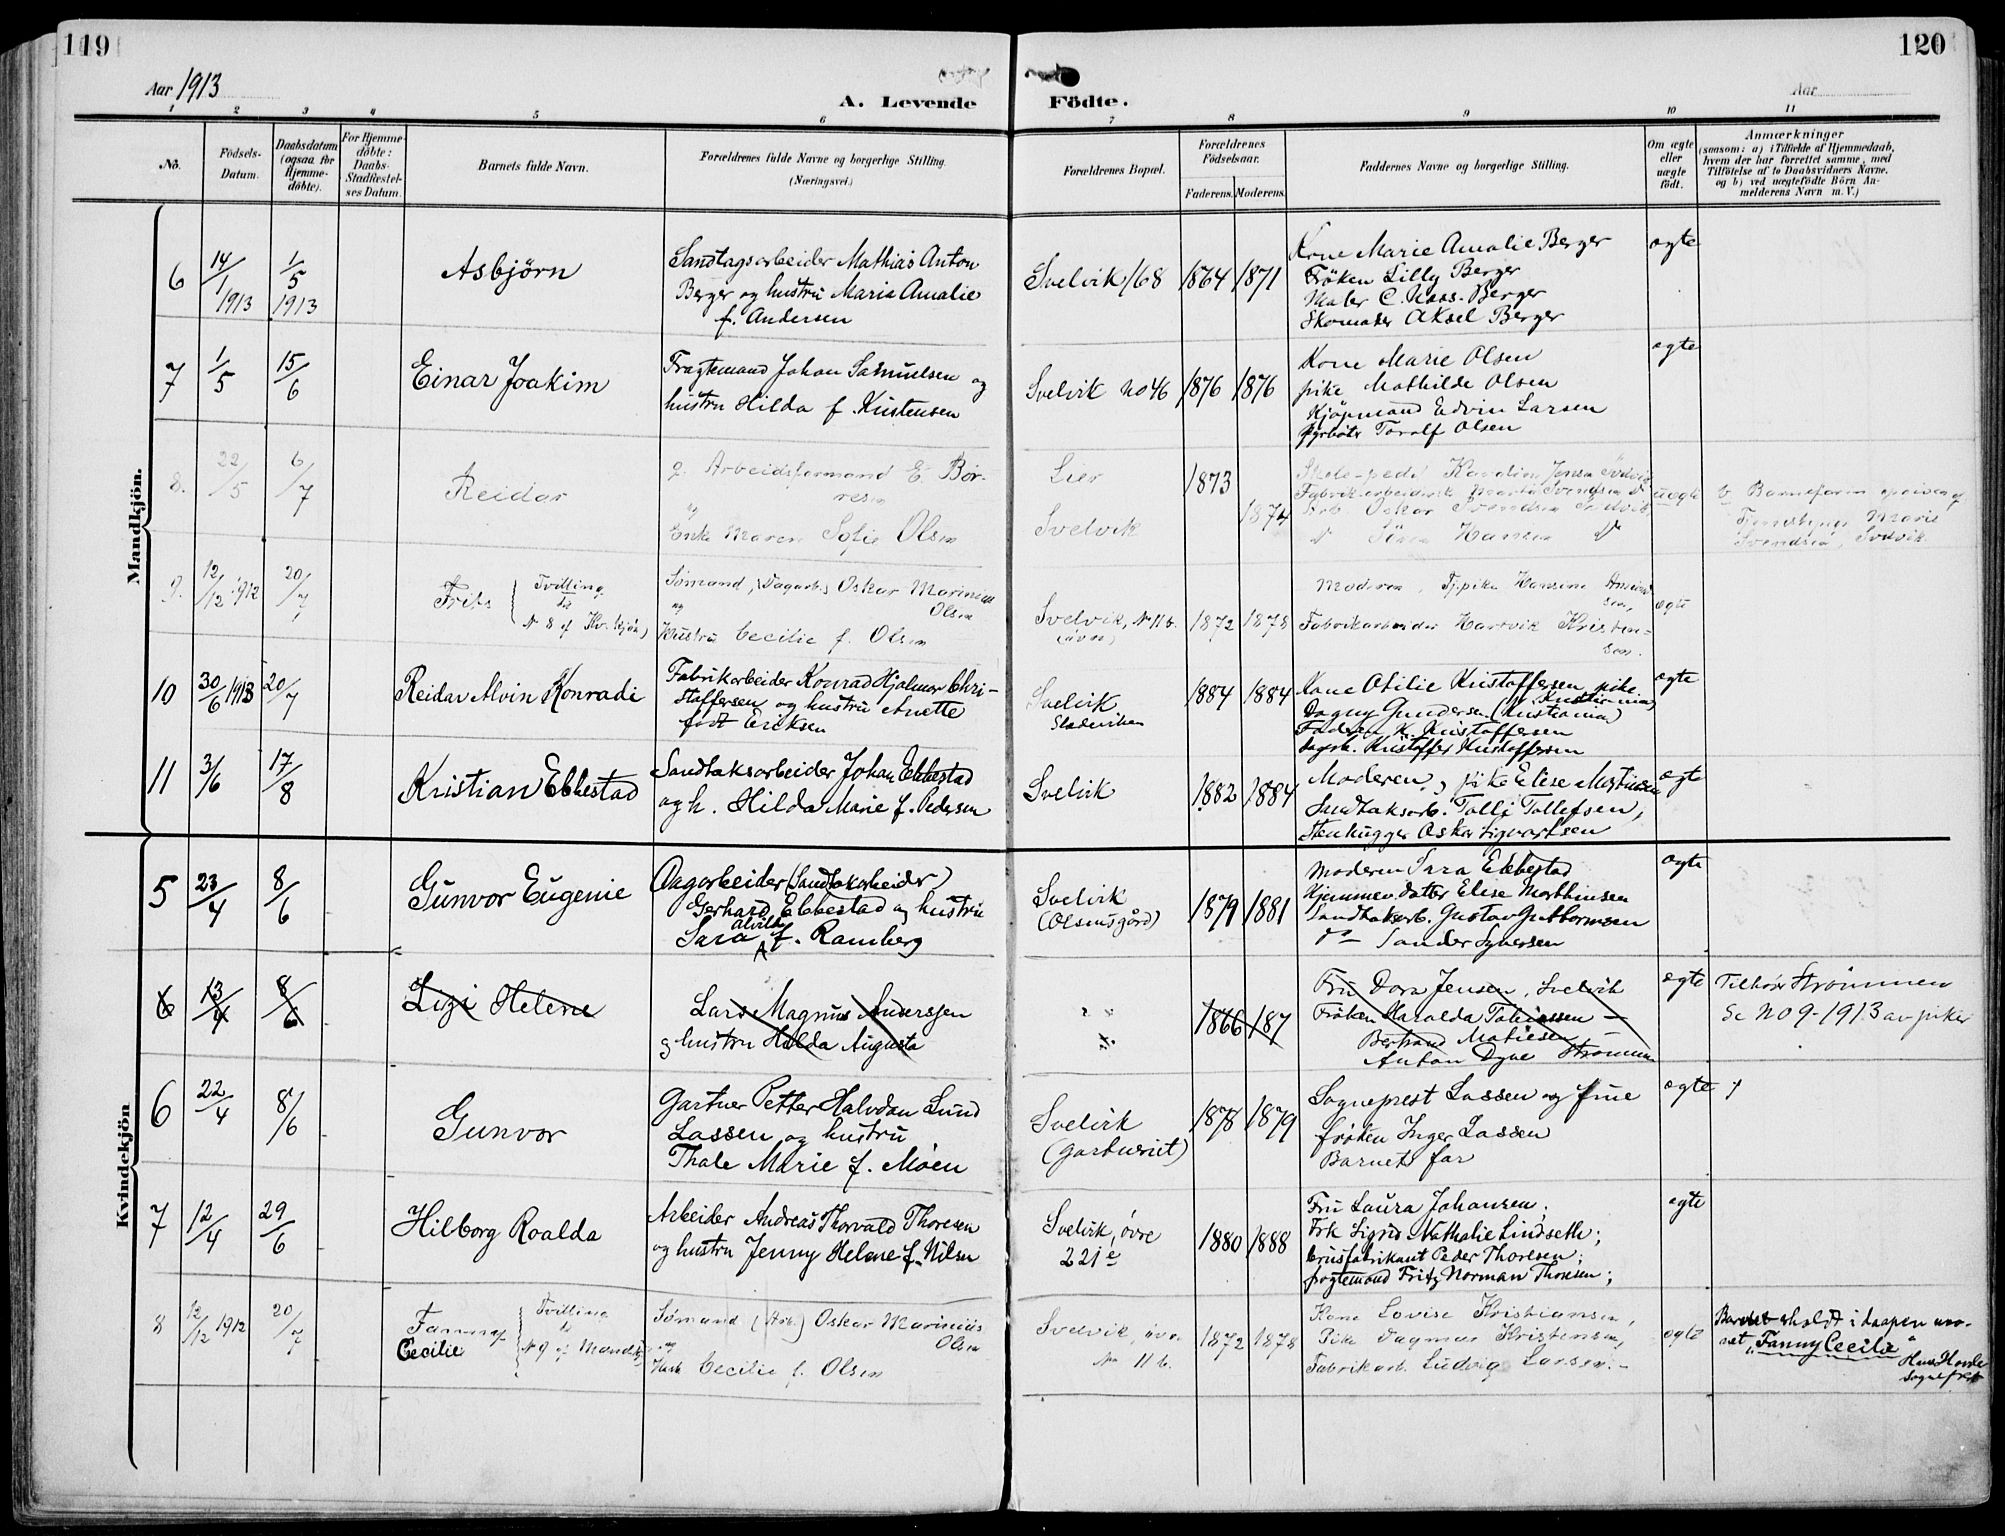 119
120
Aar 1913
A. Levende Födte.
Aar
1 2 3 4 5 6 7 8 9 10 11
No.
Födsels-Datum.
Daabsdatum (ogsaa for Hjemme-döbte).
For Hjemme-döbte: Daabs-Stadfæstel-ses Datum.
Barnets fulde Navn.
Forældrenes fulde Navne og borgerlige Stilling.
(Næringsvei.)
Forældrenes Bopæl.
Forældrenes Födselsaar.
Faderens. Moderens.
Faddernes Navne og borgerlige Stilling.
Om ægte eller uægte födt.
Anmærkninger
(saasom: a) i Tilfælde af Hjemmedaab,
hvem der har forrettet samme, med
Tilföielse af to Daabsvidners Navne,
og b) ved uægtefödte Börn An-
melderens Navn m. V.)
Mandkjön.
6 14/1 1913 1/5 1913
Asbjörn
Sandtagsarbeider Mathias Anton
Berger og hustru Maria Amalie
f. Andersen
Svelvik 168 1864 1871
Kone Marie Amalie Berger
Fröken Lilly Berger
Maler C. Berger
Skomaker Aksel Berger
ægte
7 1/5 15/6
Einar Joakim
Fragtemand Johan Samuelsen og
hustru Hilda f. Kristensen
Svelvik No 46 1876 1876
Kone Marie Olsen
pike Mathilde Olsen
Kjøpmand Edvin Larsen
Fyrböter Toralf Olsen
ægte
8. 22/5 6/7
Reidar
Arbeidsformand E. Bør-
resen
og
Enke Maren Sofie Olsen
Lier
Svelvik
1873
1874
Fabrikarbeiderske Svendsen
Arb. Oskar Svendsen Svelvik
Hansen
uægte
b. Barnefaren opgiven af
Marie
Svendsen, Svelvik
9. 12/12 1912 20/7
Frits
Tvilling
til
No 8 af Kv.kjøn)
Sømand, (Dagarb.) Oskar Marinius
Olsen
og
Hustru Cecilie f. Olsen
Svelvik, No 11 b.
(övre)
1872 1878
Moderen, Tj.pike Hansine
Fabrikarbeider Hartvik Kristen-
sen.
ægte
10 30/6 1913 20/7
Reidar Alvin Konradi
Fabrikarbeider Konrad Hjalmar Chri-
stoffersen og hustru Anette
født Eriksen
Svelvik
1884 1884
Kone Otilie Kristoffersen, pike
Dagny Gundersen (Kristiania)
Faderen K. Kristoffersen
Dagarb. Kristoffer Kristoffersen
ægte
11 3/6 17/8
Kristian Ebbestad
Sandtaksarbeider Johan Ebbestad
og h. Hilda Marie f. Pedersen
Svelvik
1882 1884
Moderen, pike Elise Martinsen
Sandtaksarb. Tolle Tollefsen,
Stenhugger Oskar Sigvartsen
ægte
Kvindekjön
5 23/4 8/6
Gunvor Eugenie
Dagarbeider (Sandtakarbeider)
Gerhard Ebbestad og hustru
Alvilde
Sara f. Ramberg
Svelvik
(Olsensgård)
1879 1881
Moderen Sara Ebbestad
Hjemmev. datter Elise Marthinsen
Sandtaksarb. Gustav Guttormsen
do Sander Syversen
ægte
6 13/4 8/6
Lizi Helene
Lars Magnus Anderssen
og hustru Halda Augusta
1866 187
Fru Dora Jensen, Svelvik
Fröken Haralda Tobiassen
Bertrand Matiesen
Anton Dyve Strømmen
ægte
Tilhør Strømmen
Se No 9-1913 av piker
6 22/4 8/6
Gunvor
Gartner Petter Halvdan Lund
Lassen og hustru
Thale Marie f. Moen
Svelvik
1878 1879
Sogneprest Lassen og frue
fröken Inger Lassen
Barnets far
ægte
7 12/4 29/6
Hilborg Roalda
Arbeider Andreas Thorvald Thoresen
og hustru Jenny Helene f. Nilsen
Svelvik, övre
221e
1880 1888
Fru Laura Johansen;
Frk Sigrid Nathalie Lindseth;
brusfabrikant Peder Thoresen;
fragtemand Fritz Norman Thoresen;
ægte
8 12/12 1912 20/7
Fanny
Cecilie
Tvilling
til
No 9 af Mandkj.
Sømand (Arb.) Oskar Marinius
Olsen
og
Hust. Cecilie f. Olsen
Svelvik, övre
No 11 b.
1872 1878
Kone Lovise Kristiansen,
Pike Dagmar Kristensen,
Fabrikarb. Ludvig Larsen.
ægte
Barnet erholdt i daapen nav-
net „Fanny Cecilie"
Hovde
sogneprest